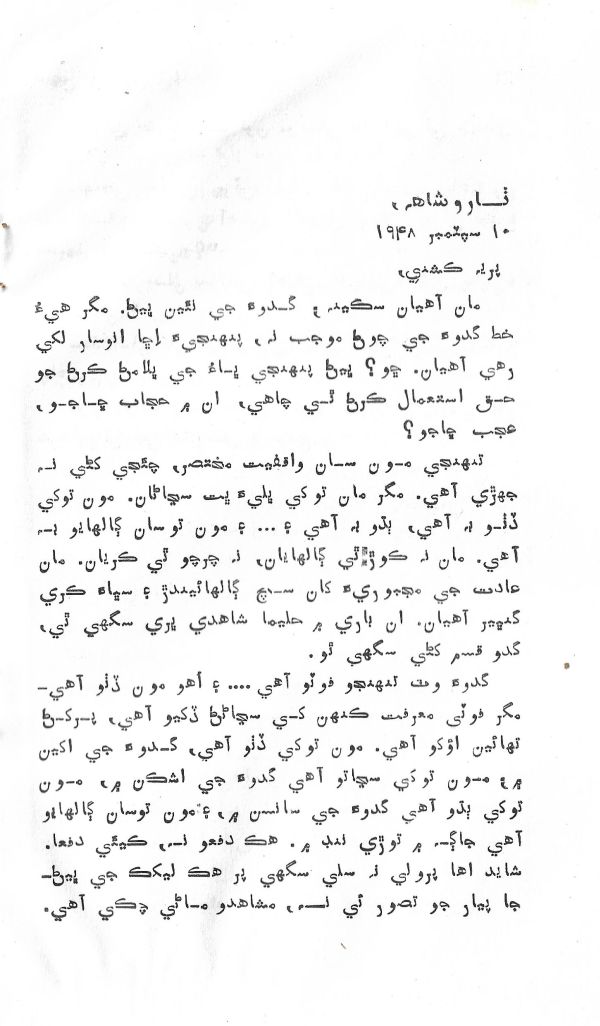 ٺارو شاهه،
۱۰ سيپٽمبر ۱۹۴۸
پريه ڪشني،
مان آهيان سڪينه ۽ گدوءَ جي ننڍين ڀيڻ. مگر هيءُ
خط گدوءَ جي چوڻ موجب نه، پنهنجيءَ اڇا انوسار لکي
رهي آهيان. ڇو؟ ڀيڻ پنهنجي ڀاءُ جي ڀلامڻ ڪرڻ جو
حق استعمال ڪرڻ ٿي چاهي، ان ۾ حجاب ڇاجو،
عجب ڇاجو؟
تنهنجي مون سان واقفيت مختصر، چئجي کڻي نه
جهڙي آهي. مگر مان توکي ڀليءَ ڀت سڃاڻان. مون توکي
ڏٺو به آهي، ٻڌو به آهي ۽ ... ۽ مون توسان ڳالهايو به
آهي. مان نه ڪوڙ ٿي ڳالهايان، نه چرچو ٿي ڪريان. مان
عادت جي مجبوريءَ کان سچ ڳالهائيندڙ ۽ سڀاءَ ڪري
گنڀير آهيان. ان باري ۾ حليما شاهدي ڀري سگهي ٿي،
گدو قسم کڻي سگهي ٿو.
گدوءَ وٽ تنهنجو فوٽو آهي .... ۽ اُهو مون ڏٺو آهي-
مگر فوٽي معرفت ڪنهن کي سڃاڻڻ ڏکيو آهي، پرکڻ
تهائين اؤکو آهي. مون توکي ڏٺو آهي، گدوءَ جي اکين
۾؛ مون توکي سڃاتو آهي گدوءَ جي اشڪن ۾، مون
توکي ٻڌو آهي گدوءَ جي سانسن ۾، ۽ مون توسان ڳالهايو
آهي جاڳ ۾ توڙي ننڊ ۾. هڪ دفعو نه، ڪيئي دفعا.
شايد اها پرولي نه سلي سگهي پر هڪ ليکڪ جي ڀيڻ-
جا پيار جو تصور ئي نه، مشاهدو ماڻي چڪي آهي.